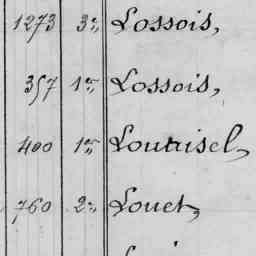 1273 3e, Lossois,
357 1er, Lossois,
400 1er, Loutrisel,
760 2e, Louet,